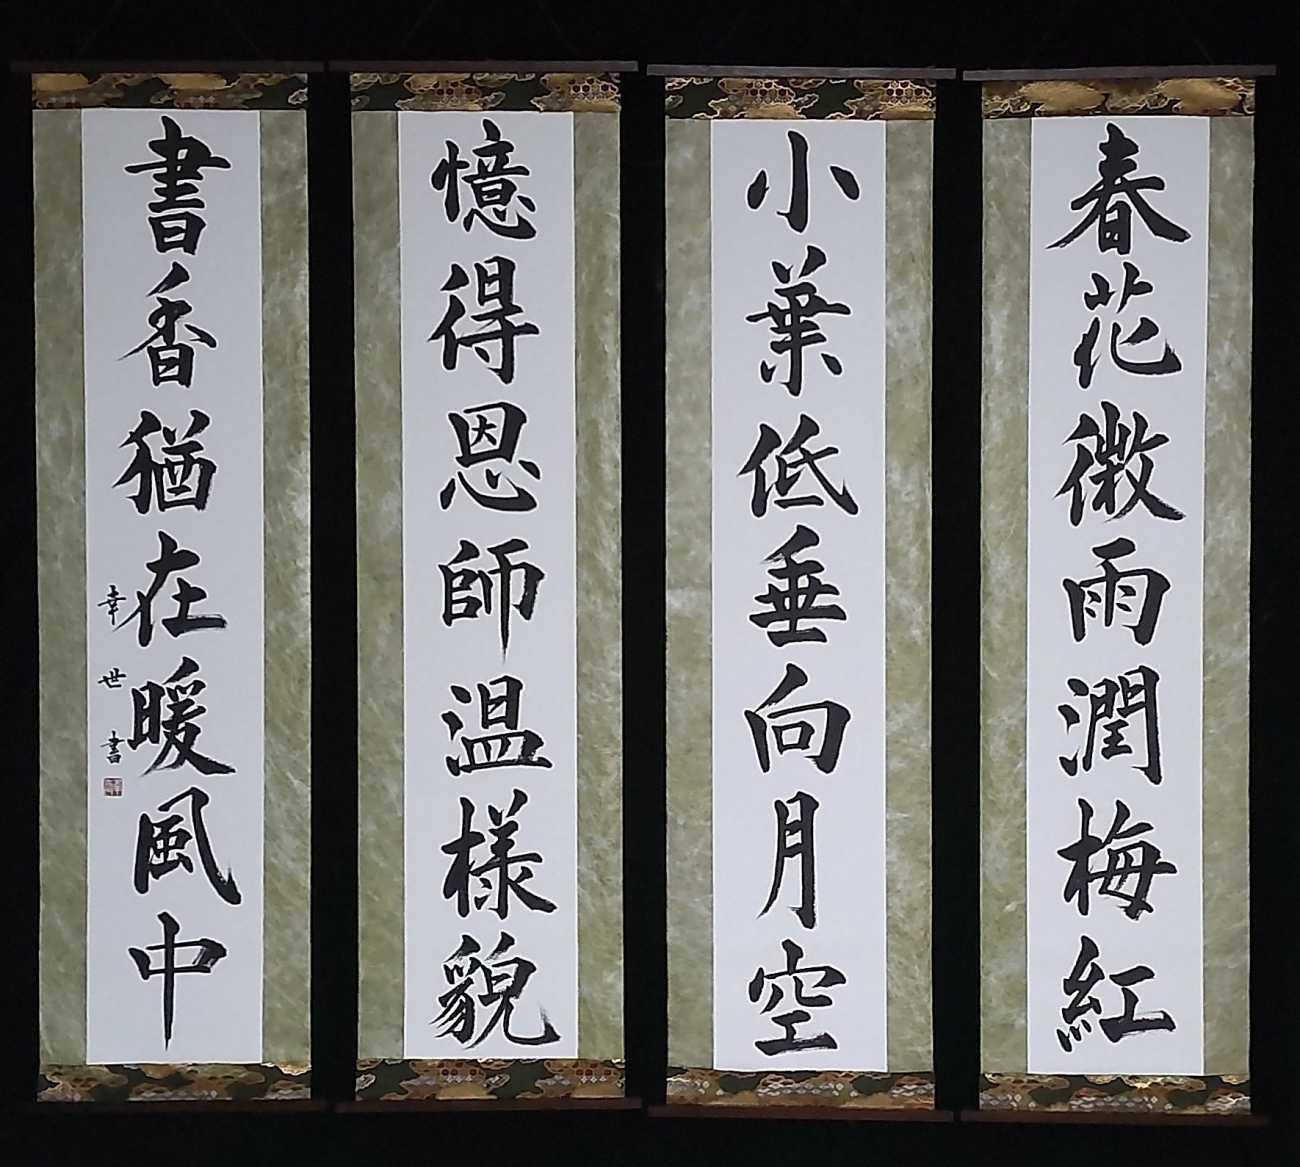 春花微雨潤梅紅
小葉低垂向月空
憶得恩師温様貌
書香猶在暖風中
幸世書